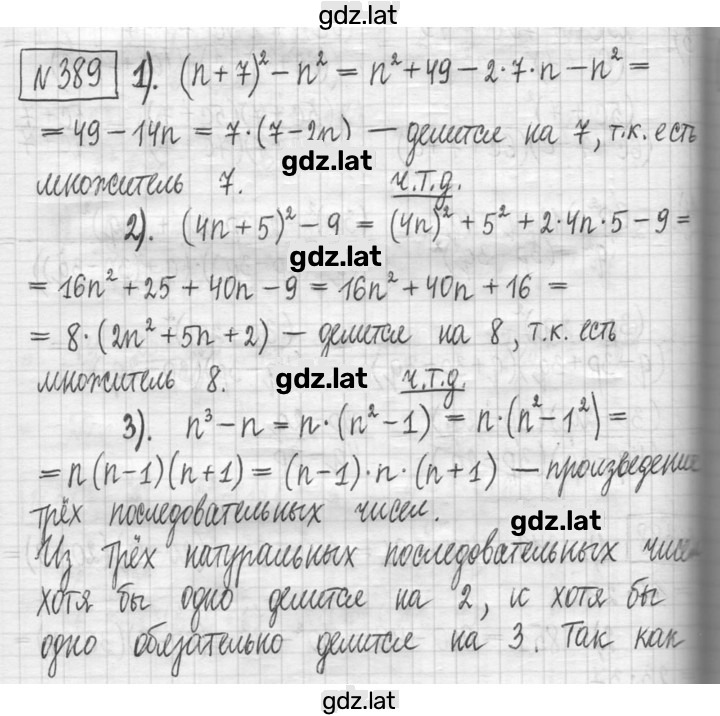 gdz.lat
№389 1). (n+7)² − n² = n² + 49 − 2·7·n − n² =
= 49 − 14n = 7·(7−2n) — делится на 7, т.к. есть
gdz.lat
множитель 7. ч.т.д.
2). (4n+5)² − 9 = (4n)² + 5² + 2·4n·5 − 9 =
gdz.lat
= 16n² + 25 + 40n − 9 = 16n² + 40n + 16 =
= 8·(2n² + 5n + 2) — делится на 8, т.к. есть
множитель 8. gdz.lat ч.т.д.
3). n³ − n = n·(n² − 1) = n·(n² − 1²) =
= n(n−1)(n+1) = (n−1)·n·(n+1) — произведение
трёх последовательных чисел.
gdz.lat
Из трёх натуральных последовательных чисе
хотя бы одно делится на 2, и хотя бы
одно обязательно делится на 3. Так как
gdz.lat